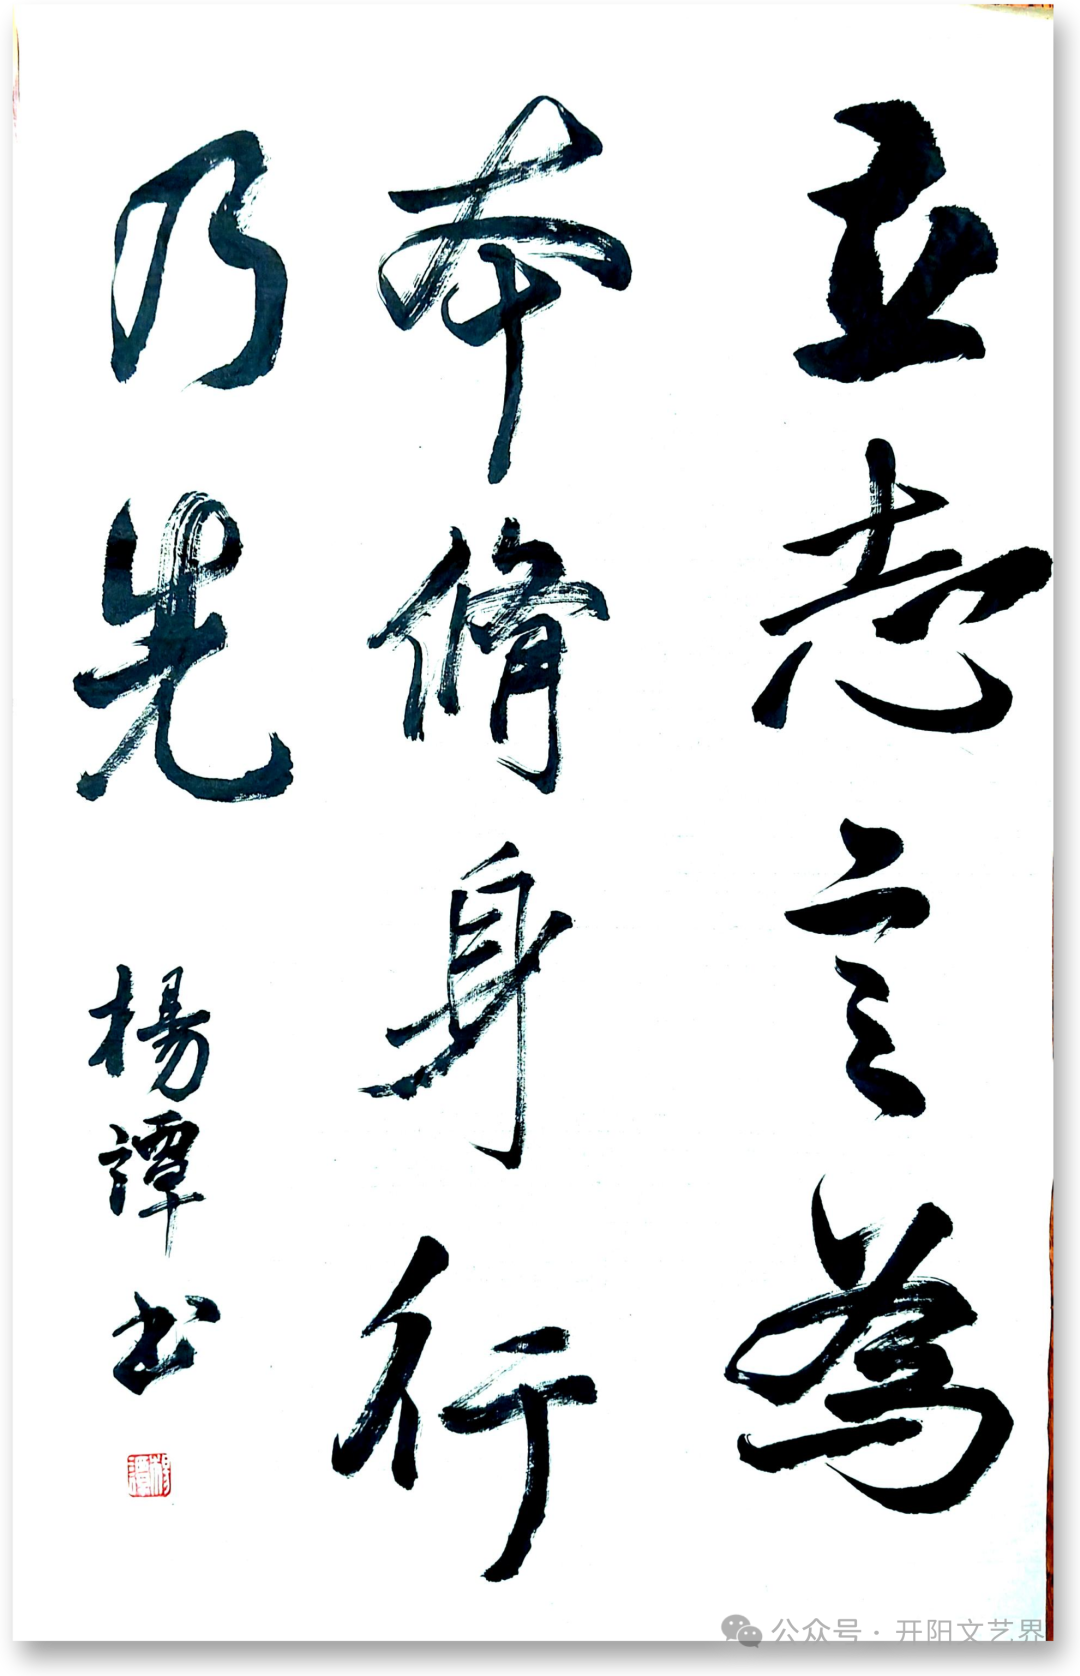 立志言為
本脩身行
乃先
楊譚書
楊譚
公众号·开阳文艺界